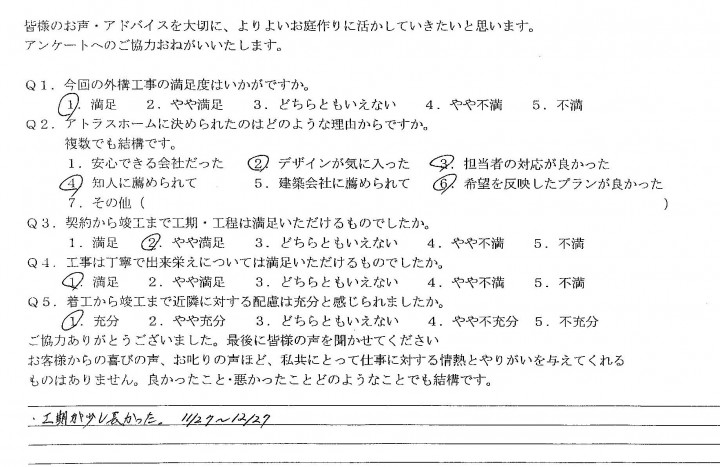 皆様のお声・アドバイスを大切に、よりよいお庭作りに活かしていきたいと思います。
アンケートへのご協力おねがいいたします。
Q1．今回の外構工事の満足度はいかがですか。
1．満足　2．やや満足　3．どちらともいえない　4．やや不満　5．不満
Q2．アトラスホームに決められたのはどのような理由からですか。
複数でも結構です。
1．安心できる会社だった　2．デザインが気に入った　3．担当者の対応が良かった
4．知人に薦められて　5．建築会社に薦められて　6．希望を反映したプランが良かった
7．その他（　）
Q3．契約から竣工まで工期・工程は満足いただけるものでしたか。
1．満足　2．やや満足　3．どちらともいえない　4．やや不満　5．不満
Q4．工事は丁寧で出来栄えについては満足いただけるものでしたか。
1．満足　2．やや満足　3．どちらともいえない　4．やや不満　5．不満
Q5．着工から竣工まで近隣に対する配慮は充分と感じられましたか。
1．充分　2．やや充分　3．どちらともいえない　4．やや不充分　5．不充分
ご協力ありがとうございました。最後に皆様の声を聞かせてください
お客様からの喜びの声、お叱りの声ほど、私共にとって仕事に対する情熱とやりがいを与えてくれる
ものはありません。良かったこと・悪かったことどのようなことでも結構です。
・工期が少し長かった。 11/27～12/27